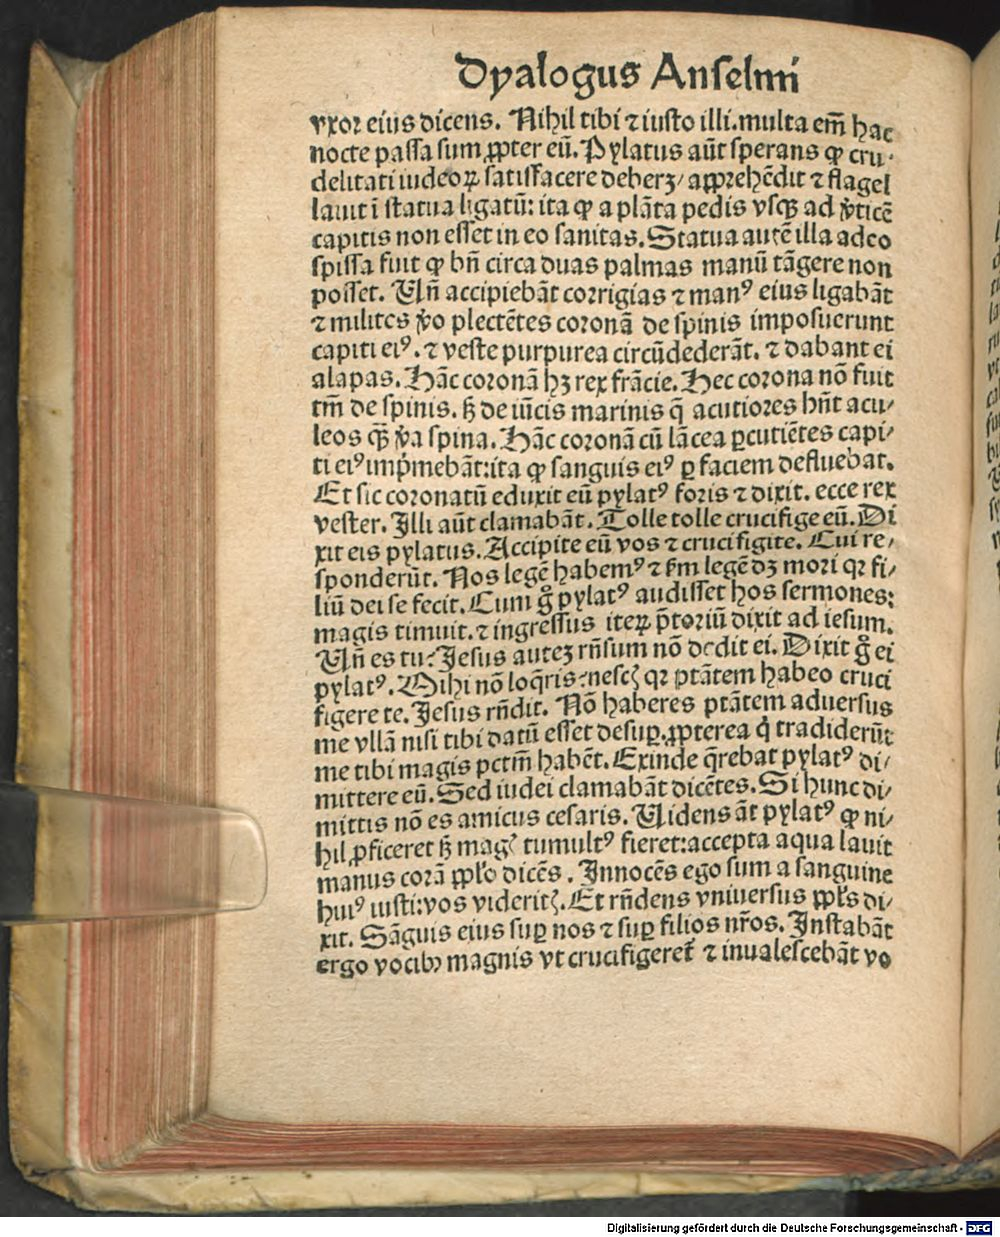 Dyalogus Anselmi
vxor eius dicens. Nihil tibi ⁊ iusto illi. multa em̄ hac
nocte passa sum ꝓpter eū. Pylatus aūt sperans ꝙ cru-
delitati iudeoꝝ satisfacere deberꝫ/ apprehēdit ⁊ flagel
lauit ī statua ligatū: ita ꝙ a plāta pedis vsqꝫ ad v̓ticē
capitis non esset in eo sanitas. Statua autē illa adeo
spissa fuit ꝙ bn̄ circa duas palmas manū tāgere non
posset. Un̄ accipiebāt corrigias ⁊ manꝰ eius ligabāt
⁊ milites v̓o plectētes coronā de spinis imposuerunt
capiti eiꝰ. ⁊ veste purpurea circūdederāt. ⁊ dabant ei
alapas. Hāc coronā hꝫ rex frācie. Hec corona nō fuit
tm̄ de spinis. sꝫ de iūcis marinis q̄ acutiores hn̄t acu/
leos qꝫ̄ v̓a spina. Hāc coronā cū lācea ꝑcutiētes capi/
ti eiꝰ imp̓mebāt: ita ꝙ sanguis eiꝰ ꝑ faciem defluebat.
Et sic coronatū eduxit eū pylatꝰ foris ⁊ dixit. ecce rex
vester. Illi aūt clamabāt. Tolle tolle crucifige eū. Di
xit eis pylatus. Accipite eū vos ⁊ crucifigite. Cui re/
sponderūt. Nos legē habemꝰ ⁊ s̄m legē dꝫ mori qꝛ fi/
liū dei se fecit. Cum gͦ pylatꝰ audisset hos sermones:
magis timuit. ⁊ ingressus iteꝝ p̄toriū dixit ad iesum.
Un̄ es tu: Jesus auteꝫ rn̄sum nō dedit ei. Dixit gͦ ei
pylatꝰ. Mihi nō loq̄ris: nescꝭ qꝛ ptātem habeo cruci
figere te. Jesus rn̄dit. Nō haberes ptātem aduersus
me vllā nisi tibi datū esset desuꝑ. ꝓpterea q̇ tradiderūt
me tibi magis pctm̄ habēt. Exinde q̄rebat pylatꝰ di/
mittere eū. Sed iudei clamabāt dicētes. Si hunc di/
mittis nō es amicus cesaris. Uidens āt pylatꝰ ꝙ ni/
hil ꝓficeret sꝫ magꝭ tumultꝰ fieret: accepta aqua lauit
manus corā ppl̓o dicēs. Innocēs ego sum a sanguine
huiꝰ iusti: vos videritꝭ. Et rn̄dens vniuersus ppl̓s di/
xit. Sāguis eius suꝑ nos ⁊ suꝑ filios nr̄os. Instabāt
ergo vocibꝰ magnis vt crucifigeret̄ ⁊ inualescebāt vo
Digitalisierung gefördert durch die Deutsche Forschungsgemeinschaft - DFG